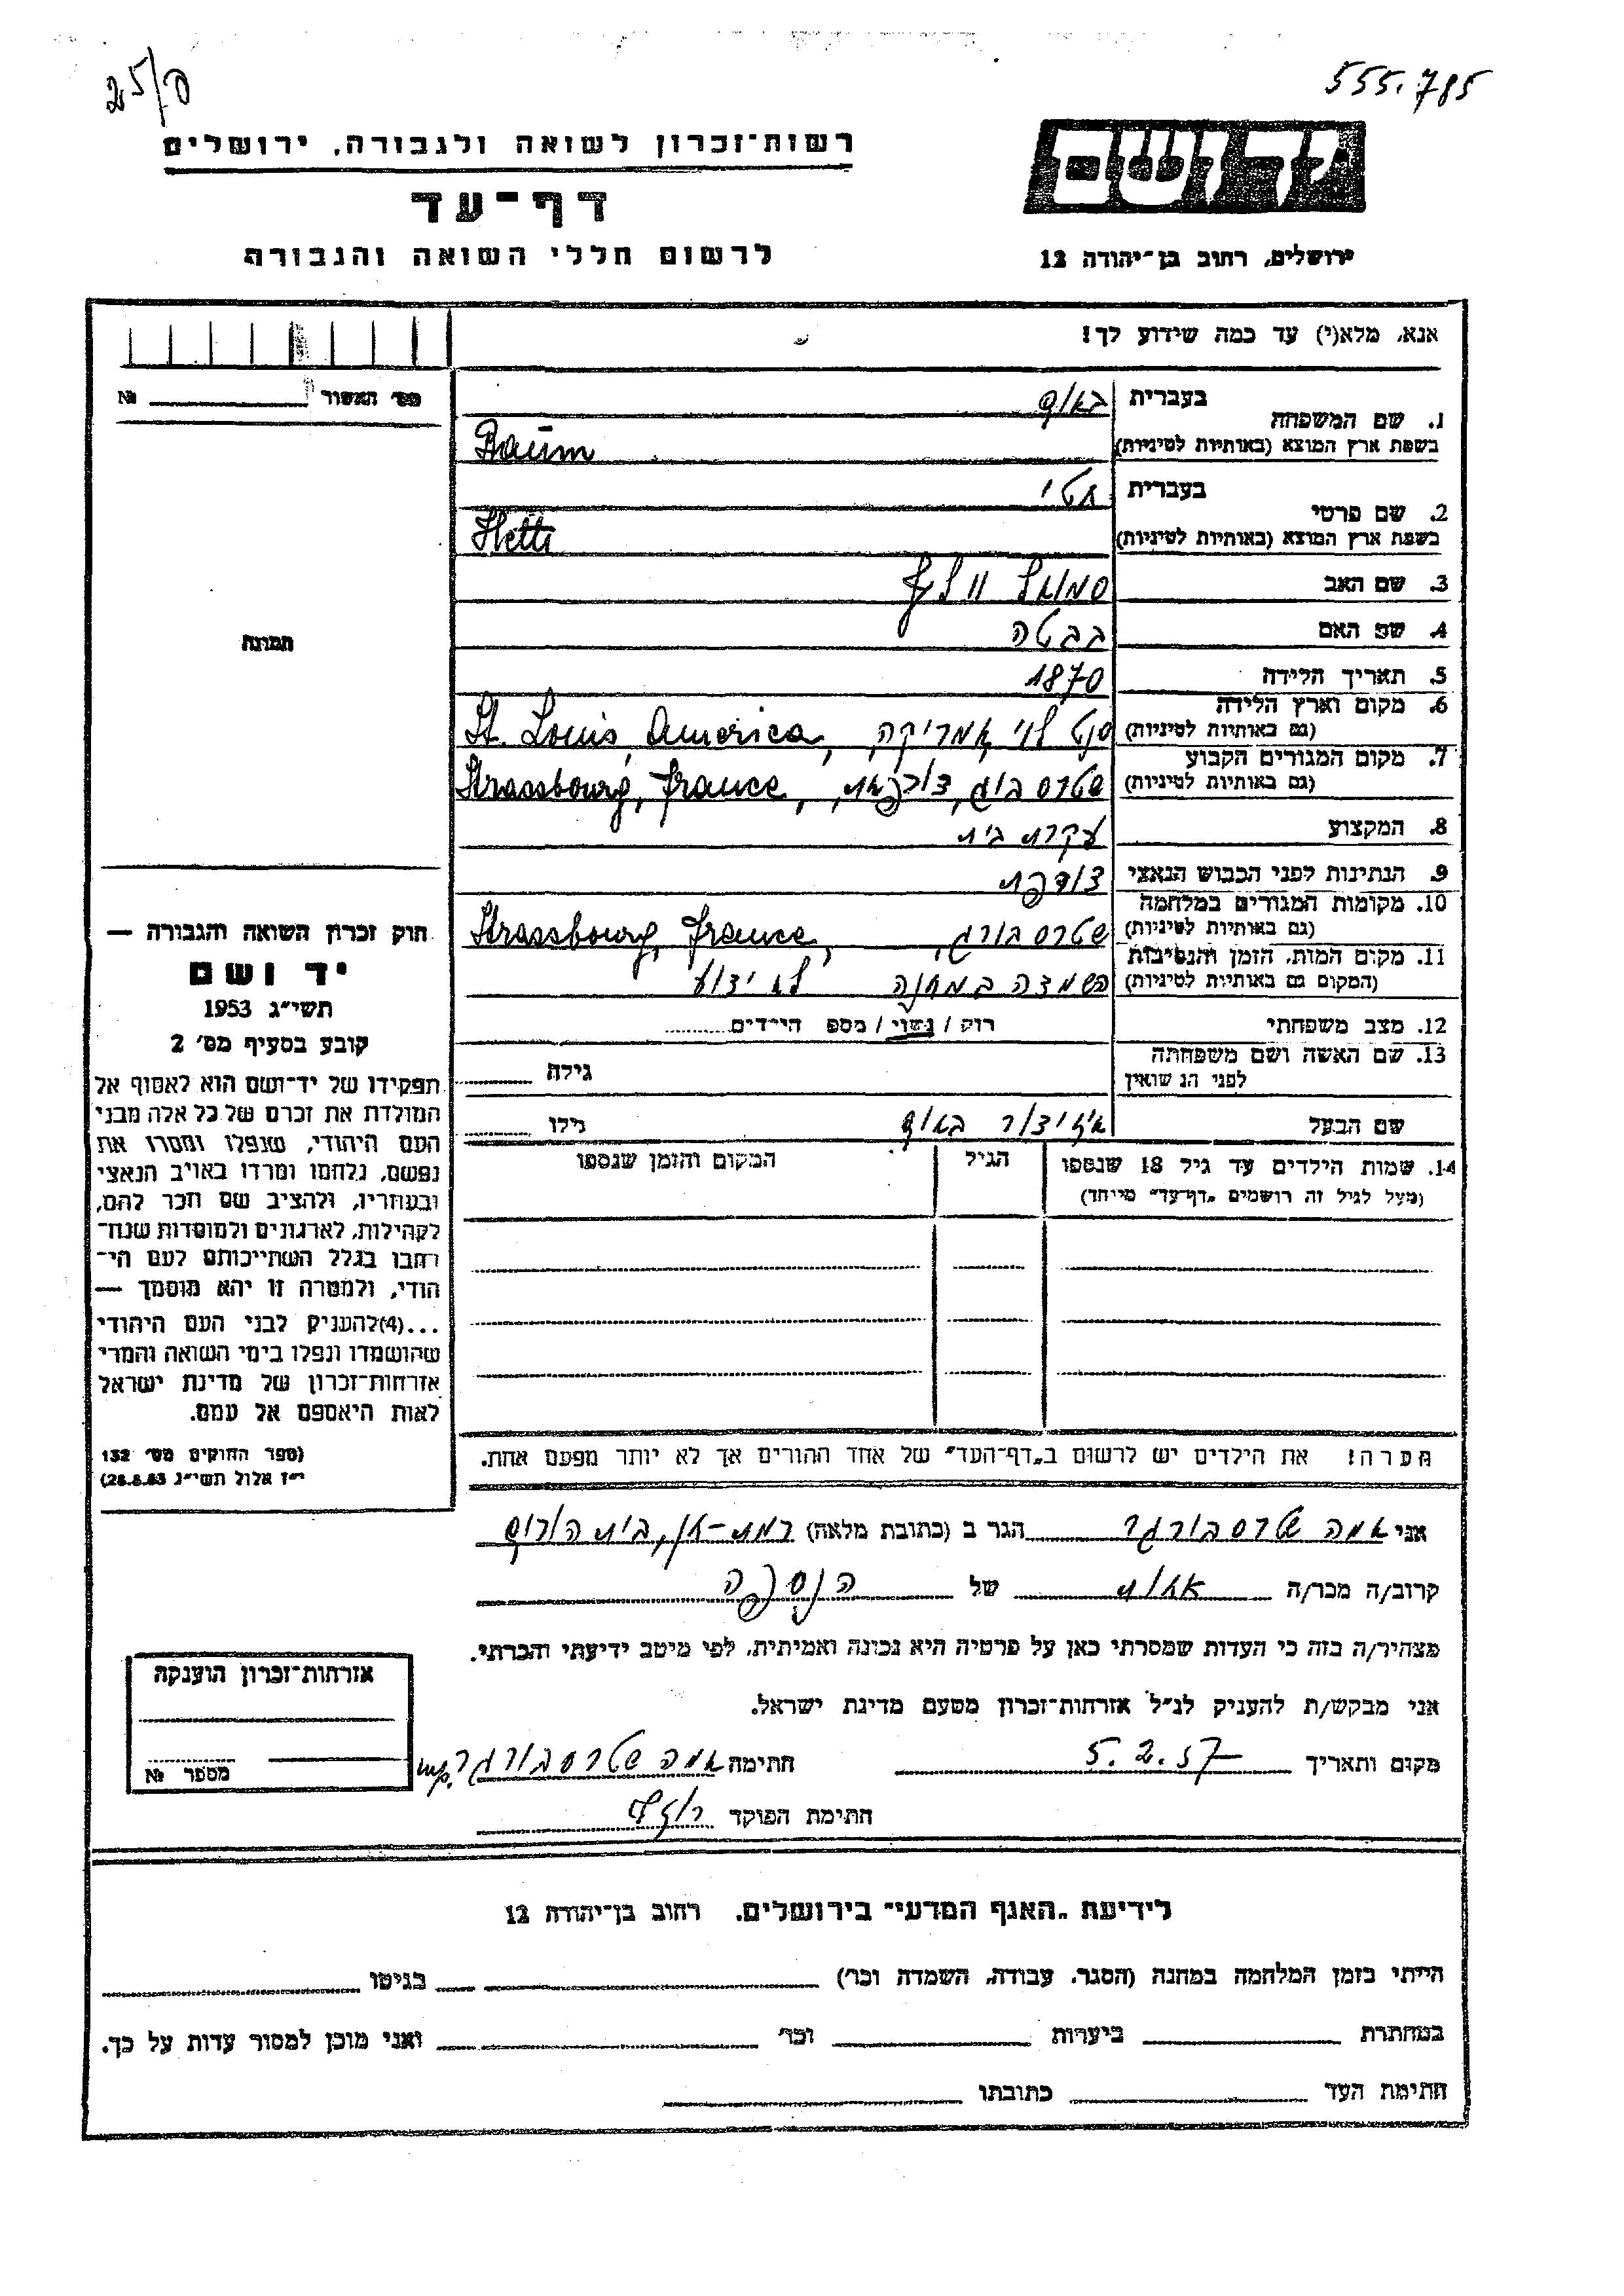 25/ס
555.785
ידושם
רשות־זכרון לשואה ולגבורה, ירושלים
דף־עד
לרשום חללי השואה והגבורה
ירושלים, רחוב בן־יהודה 12
אנא, מלא(י) עד כמה שידוע לך!
מס׳ האשור № 
1. שם המשפחה בעברית באום
בשפת ארץ המוצא (באותיות לטיניות) Baum
2. שם פרטי בעברית הטי
בשפת ארץ המוצא (באותיות לטיניות) Hetti
3. שם האב סמואל וולף
4. שם האם בבטה
5. תאריך הלידה 1870
6. מקום וארץ הלידה (גם באותיות לטיניות) סנט לוי אמריקה, St. Louis, America,
7. מקום המגורים הקבוע (גם באותיות לטיניות) שטרסבורג, צורפאת, Strassbourg, France,
8. המקצוע עקרת בית
9. הנתינות לפני הכבוש הנאצי צורפת
10. מקומות המגורים במלחמה (גם באותיות לטיניות) שטרסבורג, Strassbourg, France,
11. מקום המות, הזמן והנסיבות (המקום גם באותיות לטיניות) השמדה במחנה לא ידוע
12. מצב משפחתי רוק / נשוי / מספ הילדים
13. שם האשה ושם משפחתה לפני הנשואין גילה
שם הבעל באום גילו
14. שמות הילדים עד גיל 18 שנספו הגיל המקום והזמן שנספו
(מעל לגיל זה רושמים „דף־עד" מייחד)
תמונה
חוק זכרון השואה והגבורה —
יד ושם
תשי״ג 1953
קובע בסעיף מס׳ 2
תפקידו של יד־ושם הוא לאסוף אל
המולדת את זכרם של כל אלה מבני
העם היהודי, שנפלו ומסרו את
נפשם, נלחמו ומרדו באויב הנאצי
ובעוזריו, ולהציב שם וזכר להם,
לקהילות, לארגונים ולמוסדות שנח־
רבו בגלל השתייכותם לעם הי־
הודי, ולמטרה זו יהא מוסמך —
...(4)להעניק לבני העם היהודי
שהושמדו ונפלו בימי השואה והמרי
אזרחות־זכרון של מדינת ישראל
לאות היאספם אל עמם.
(ספר החוקים מס׳ 132
י״ז אלול תשי״ג 28.8.53)
הערה! את הילדים יש לרשום ב„דף־העד" של אחד ההורים אך לא יותר מפעם אחת.
אני אמה שטרסבורגר הגר ב (כתובת מלאה) רמת-גן, בית הורים
קרוב/ה מכר/ה אחות של הנספה
מצהיר/ה בזה כי העדות שמסרתי כאן על פרטיה היא נכונה ואמיתית, לפי מיטב ידיעתי והכרתי.
אני מבקש/ת להעניק לנ״ל אזרחות־זכרון מטעם מדינת ישראל.
מקום ותאריך 5.2.57 חתימה אמה שטרסבורגר
חתימת הפוקד
אזרחות־זכרון הוענקה
מספר №
לידיעת „האגף המדעי" בירושלים, רחוב בן־יהודה 12
הייתי בזמן המלחמה במחנה (הסגר, עבודה, השמדה וכו׳) בגיטו
במחתרת ביערות וכו׳ ואני מוכן למסור עדות על כך.
חתימת העד כתובתו